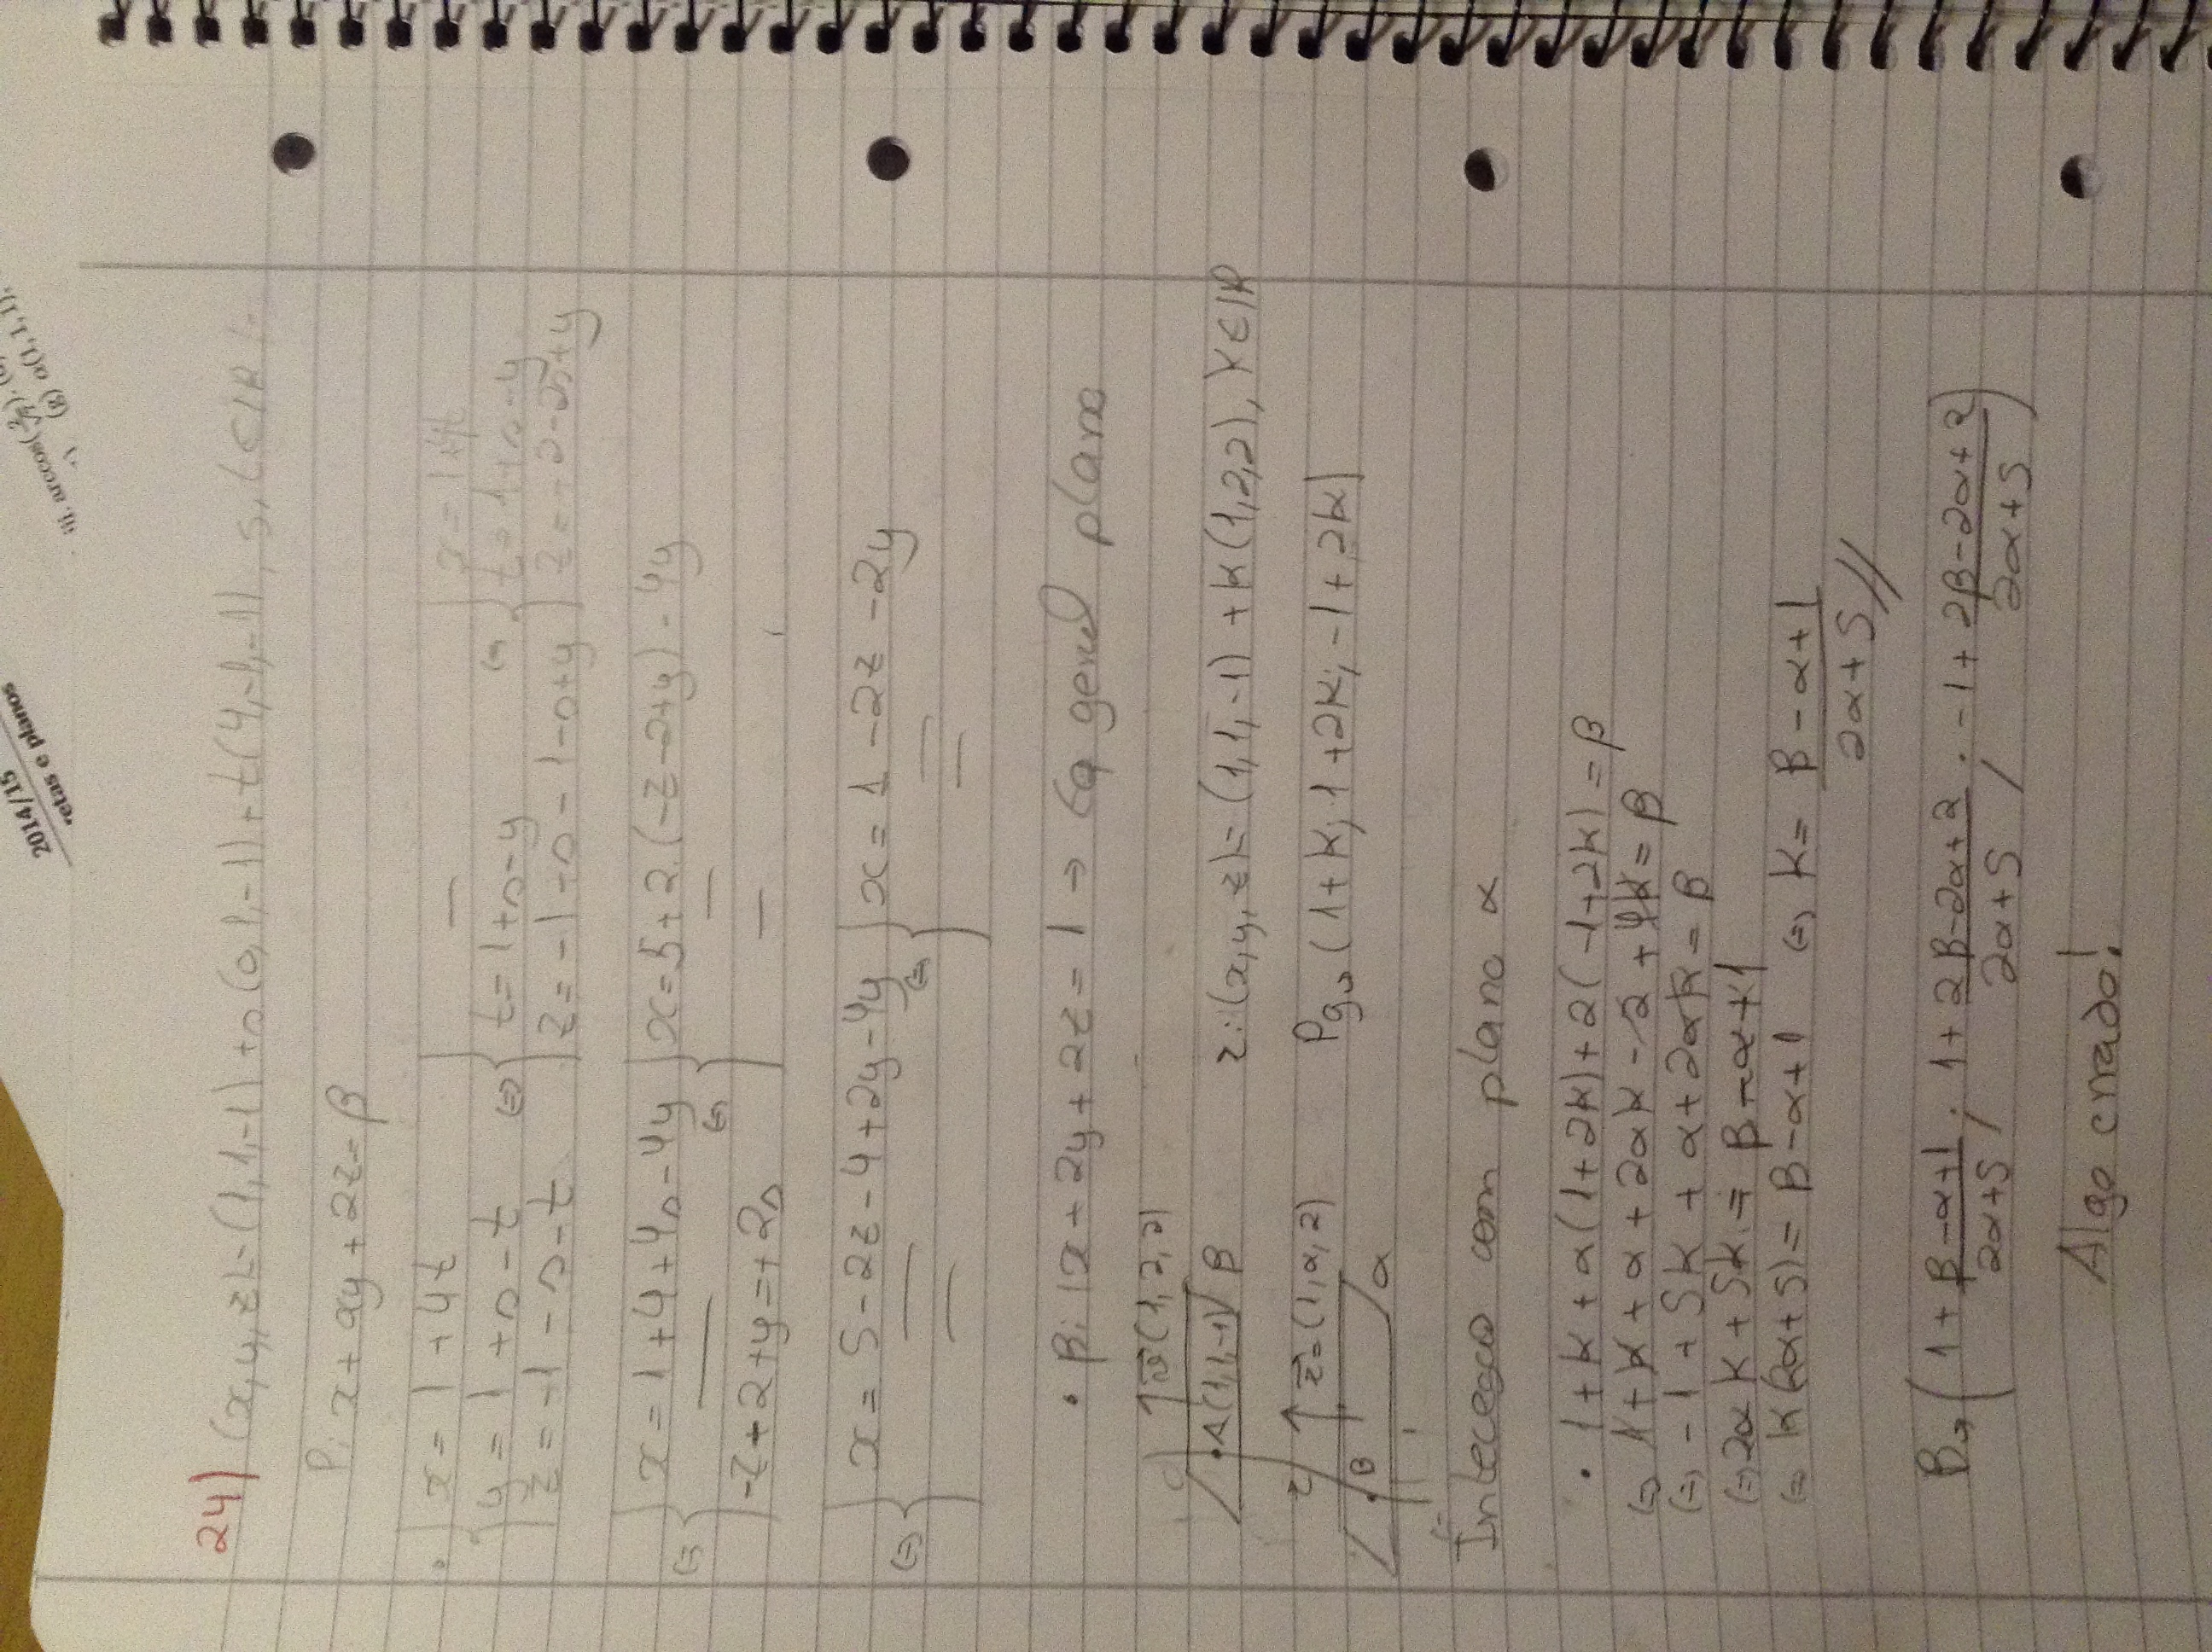 2014/15
retas e planos
iii. arccos(2/√7).
(g) α(1,1,1),
24) (x,y,z)=(1,1,-1)+s(0,1,-1)+t(4,-1,-1), s,t∈IR
P: x+αy+2z=β
• { x=1+4t { — { x=1+4t
{ y=1+s-t ⇔ { t=1+s-y ⇔ { t=1+s-y
{ z=-1-s-t { z=-1-s-1-s+y { z=-2-2s+y
⇔ { x=1+4+4s-4y ⇔ { x=5+2.(-z-2+y)-4y
{ — { —
{ -z-2+y=+2s { —
⇔ { x=5-2z-4+2y-4y ⇔ { x=1-2z-2y
{ — { —
{ — { —
• β: 1x+2y+2z=1 → Eq geral plano
v⃗(1,2,2)
A(1,1,-1) β r: (x,y,z)=(1,1,-1)+K(1,2,2), K∈IR
r r⃗=(1,α,2) Pg→(1+K; 1+2K; -1+2K)
B α
Intecessao com plano α
• 1+K+α(1+2K)+2(-1+2K)=β
⇔ 1+K+α+2αK-2+4K=β
⇔ -1+5K+α+2αK=β
⇔ 2αK+5K=β-α+1
⇔ K(2α+5)=β-α+1 ⇔ K=(β-α+1)/(2α+5) //
B→(1+(β-α+1)/(2α+5); 1+(2β-2α+2)/(2α+5); -1+(2β-2α+2)/(2α+5))
Algo errado!